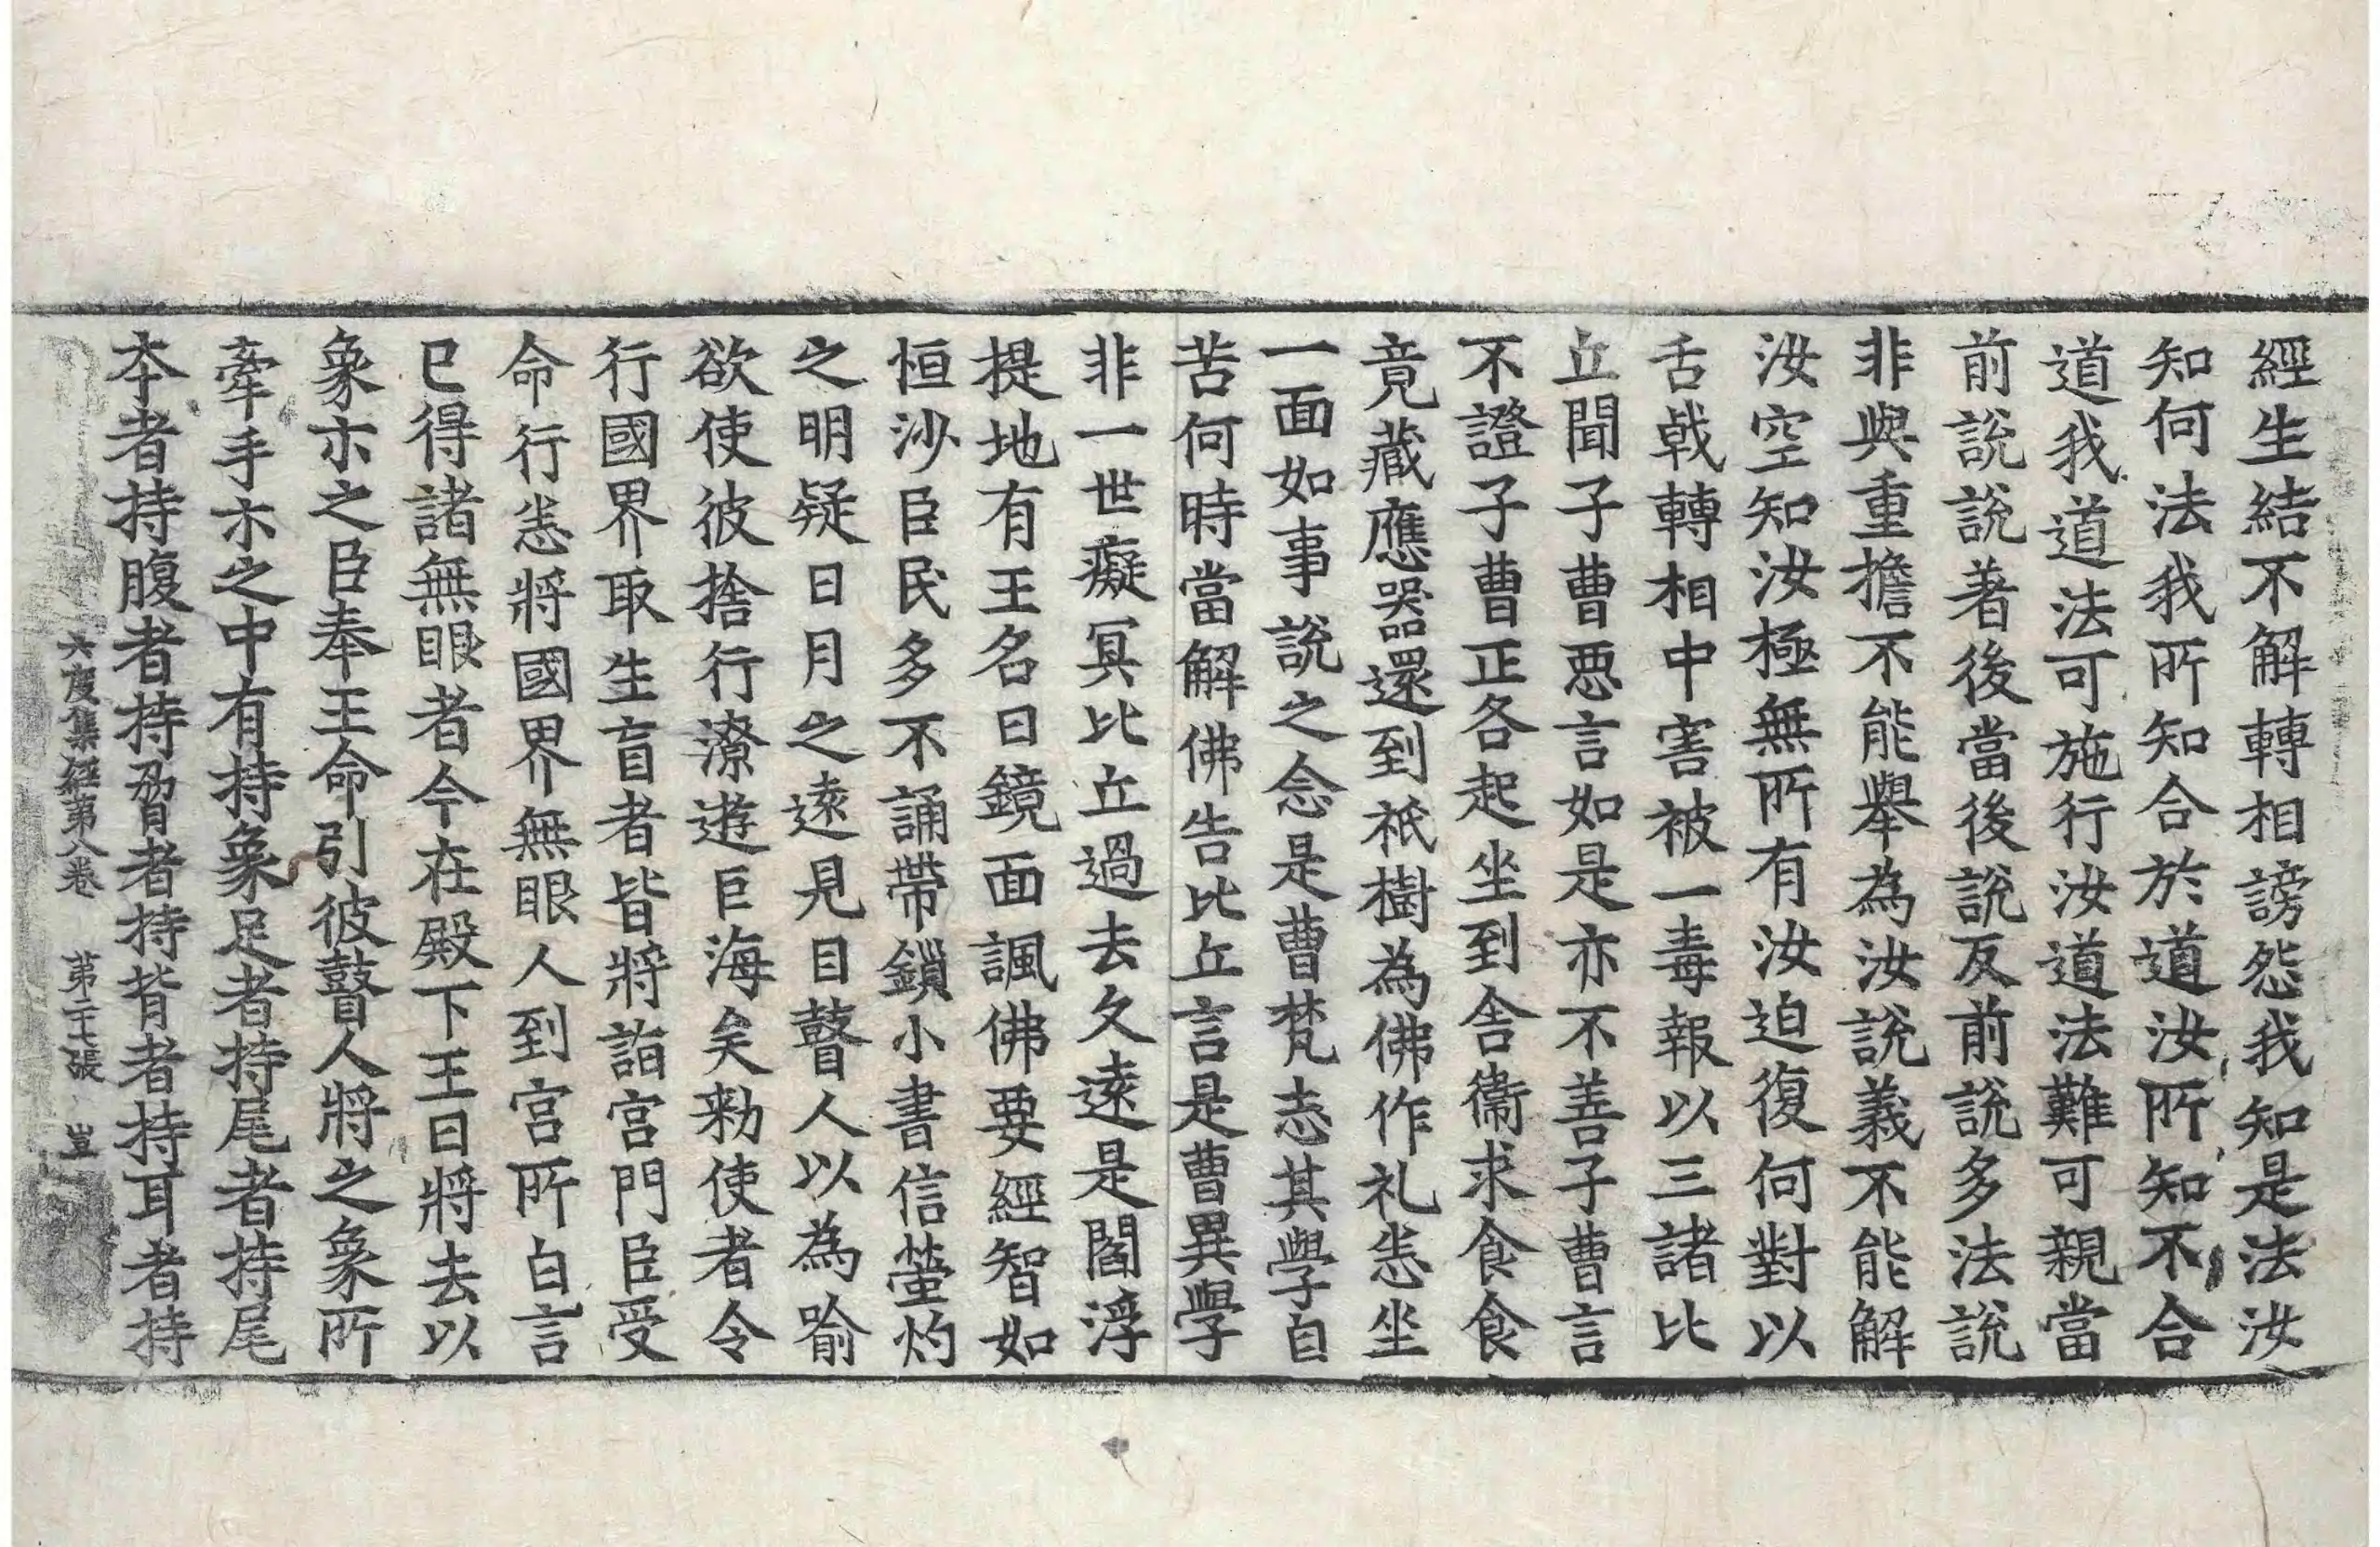 經生結不解轉相謗怨我知是法汝
知何法我所知合於道汝所知不合
道我道法可施行汝道法難可親當
前說說著後當後說反前說多法說
非與重擔不能舉為汝說義不能解
汝空知汝極無所有汝迫復何對以
舌戟轉相中害被一毒報以三諸比
丘聞子曹惡言如是亦不善子曹言
不證子曹正各起坐到舍衛求食食
竟藏應器還到祇樹為佛作礼悉坐
一面如事說之念是曹梵志其學自
苦何時當解佛告比丘言是曹異學
非一世癡冥比丘過去久遠是閻浮
提地有王名曰鏡面諷佛要經智如
恒沙臣民多不誦帶鎖小書信螢灼
之明疑日月之遠見目瞽人以為喻
欲使彼捨行潦遊巨海矣勑使者令
行國界取生盲者皆將詣宮門臣受
命行悉將國界無眼人到宮所白言
已得諸無眼者今在殿下王曰將去以
象示之臣奉王命引彼瞽人將之象所
牽手示之中有持象足者持尾者持尾
夲者持腹者持脅者持背者持耳者持
六度集經第八卷 第二十七張 豈